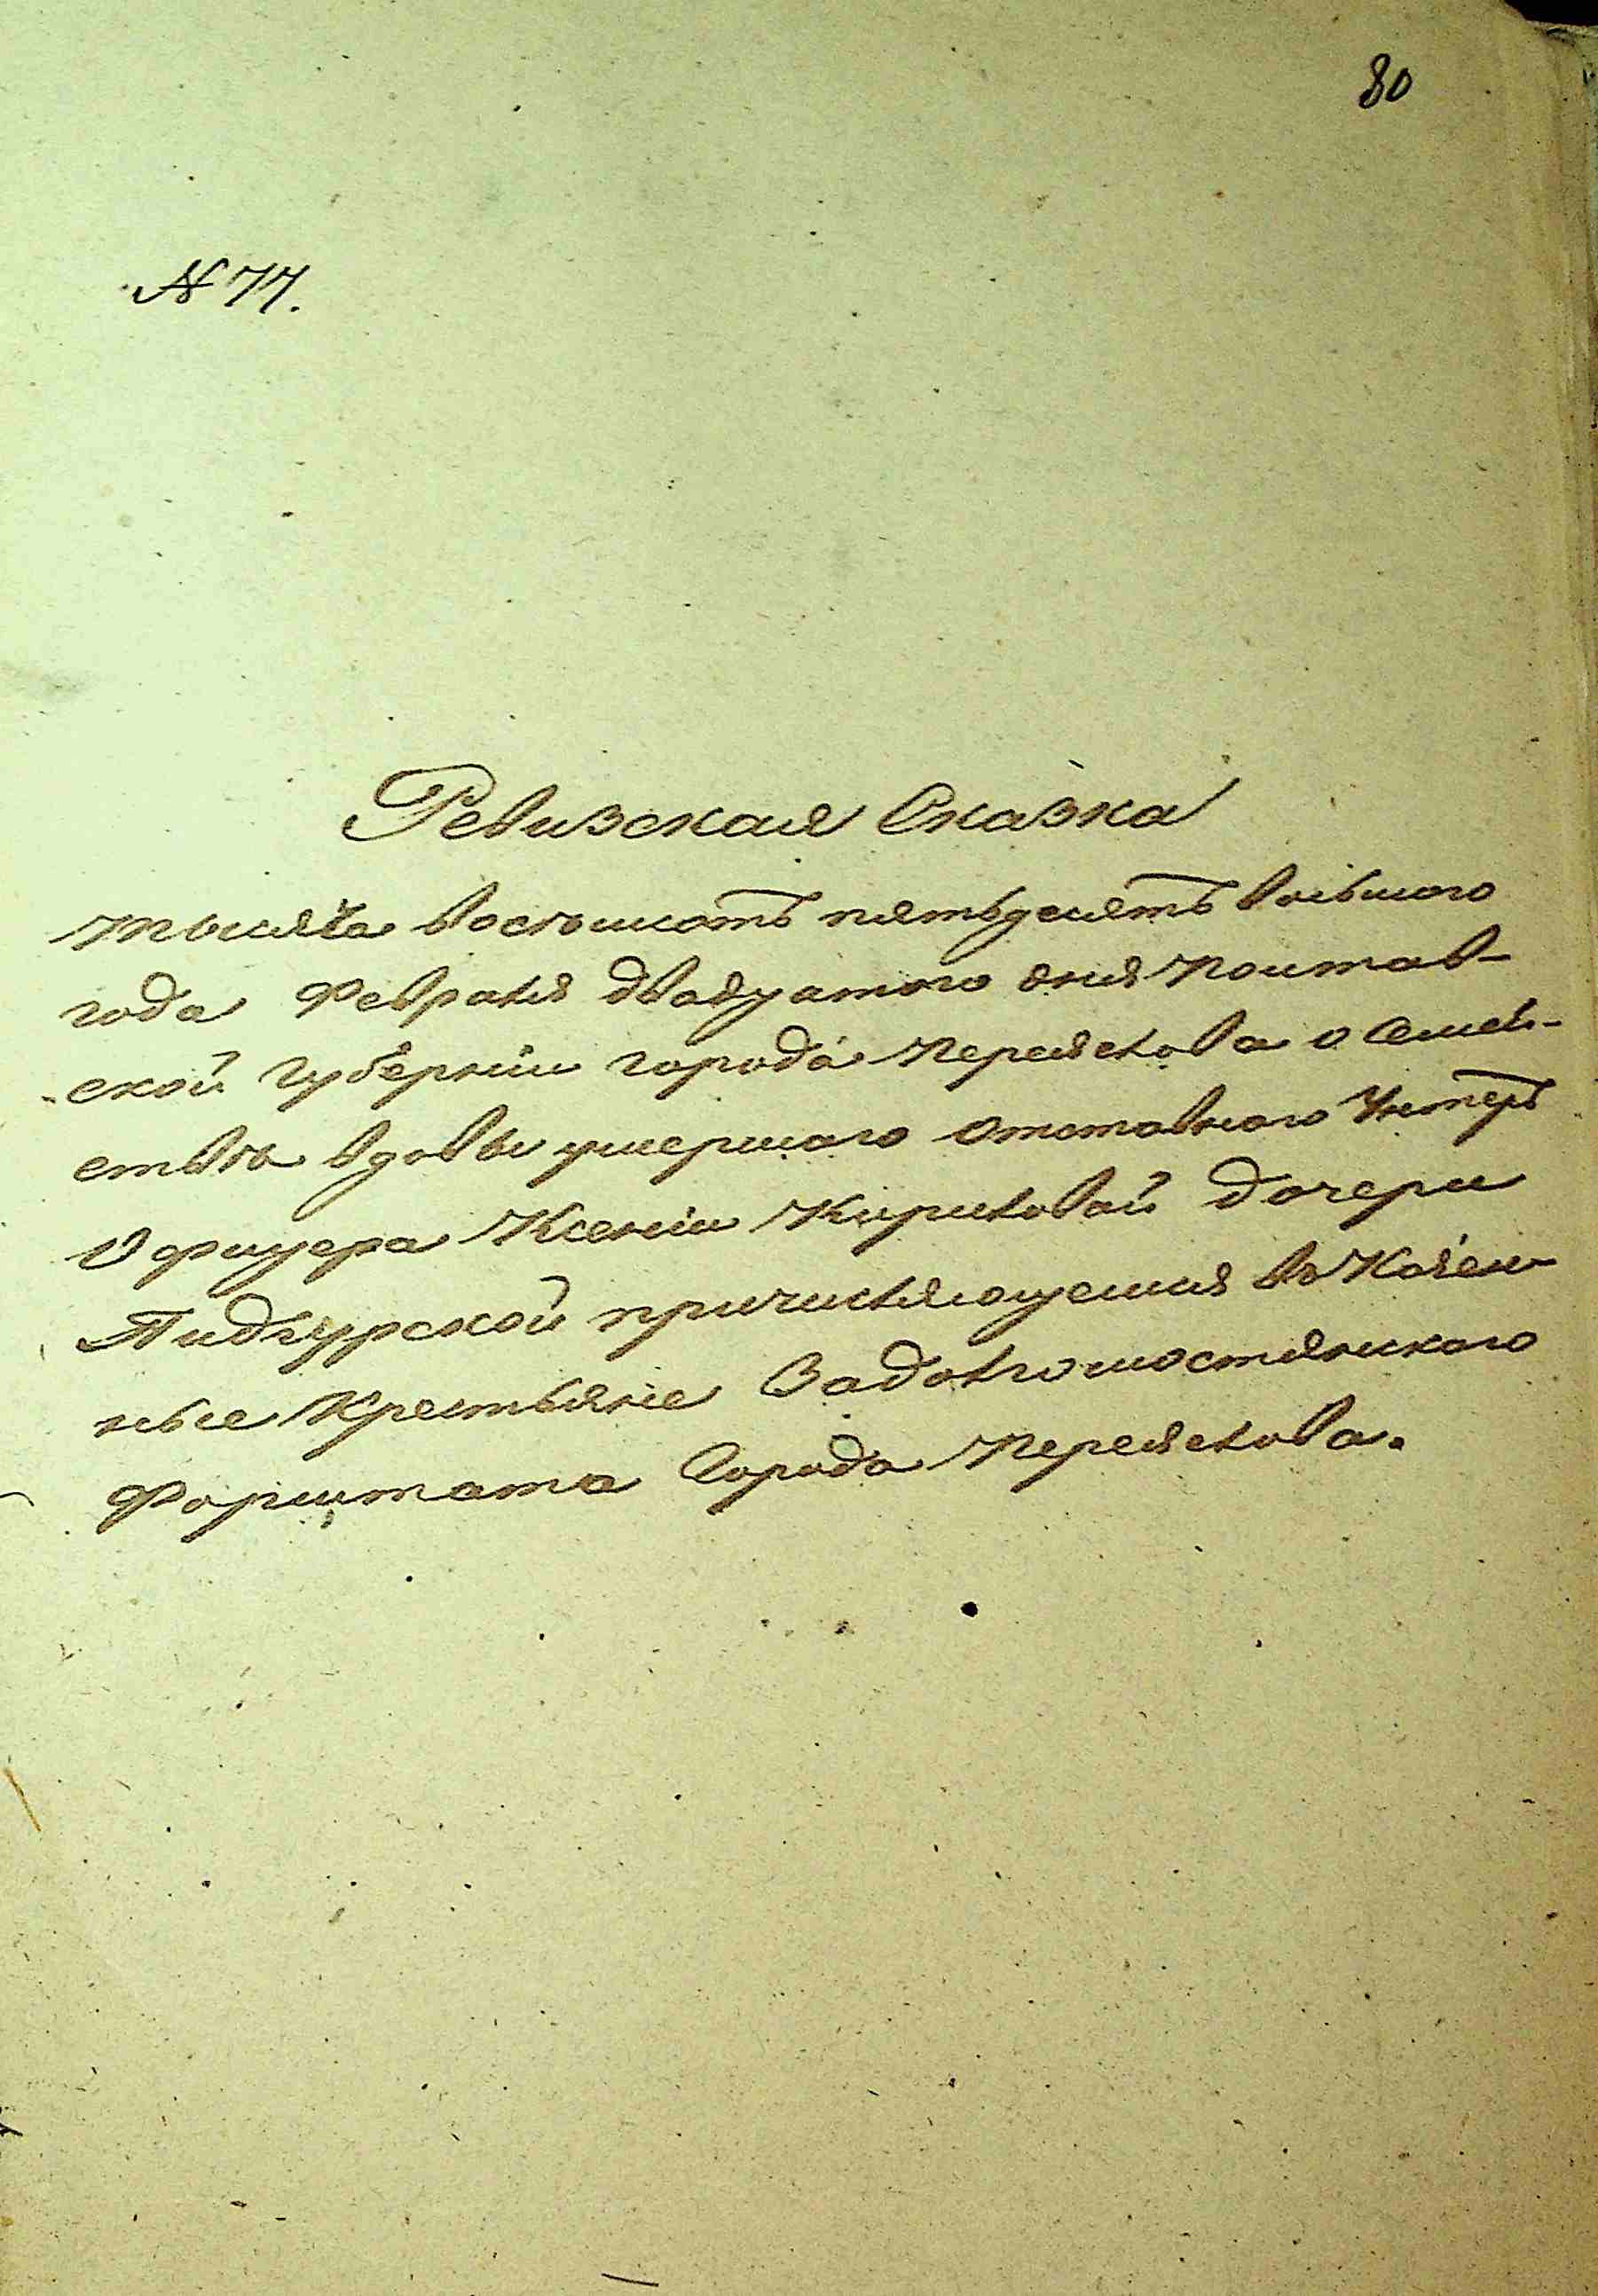 80
№ 77.
Ревизская Сказка
тысяча восемьсотъ пятьдесятъ восьмаго
года Февраля двадцатого дня Полтав-
ской Губерніи города Переяслова о Семей-
ствѣ вдовы умершаго отставного Унтеръ
Офицера Ксеніи Кириловой дочери
Пидгурской причисляющемся въ Казен-
ные Крестьяне Задолгомостянского
Форштата Города Переяслова.